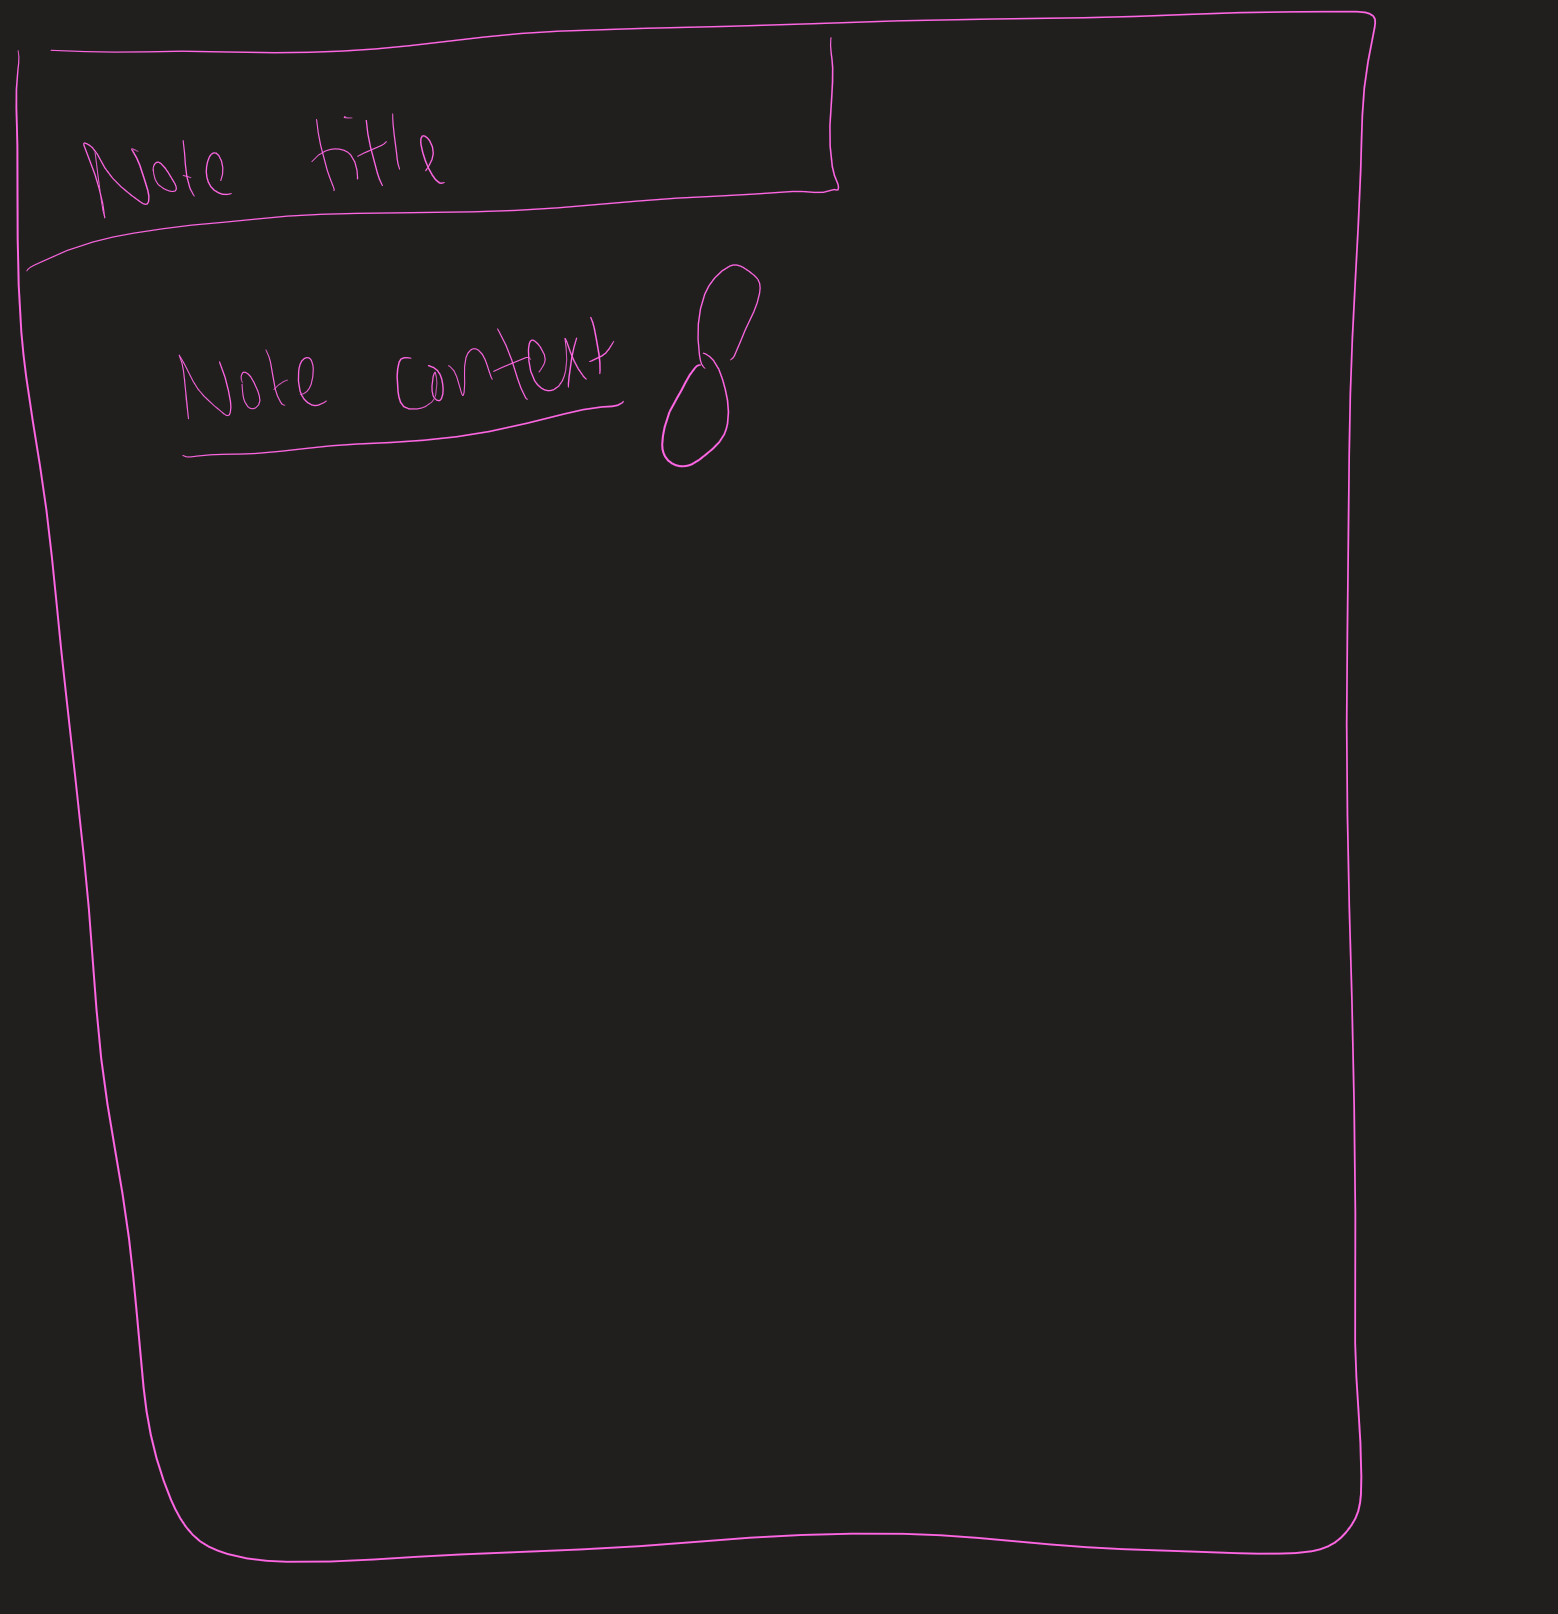 Note title
Note context